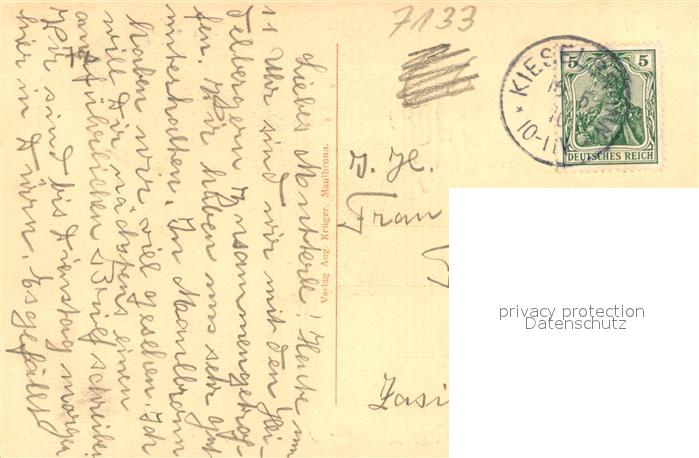 Liebes Mutterl! Heute um
11 Uhr sind wir mit den Hei-
delbergern zusammengetrof-
fen. Wir haben uns sehr gut
unterhalten. In Maulbronn
haben wir viel gesehen. Ich
will Dir nächstens einen
ausführlichen Brief schreiben
Wir sind bis Dienstag morgen
hier in Dürrn. Es gefällt
Verlag Aug. Krüger, Maulbronn.
7133
KIESEL
10-11V
5 5
DEUTSCHES REICH
I. H.
Frau
privacy protection
Datenschutz